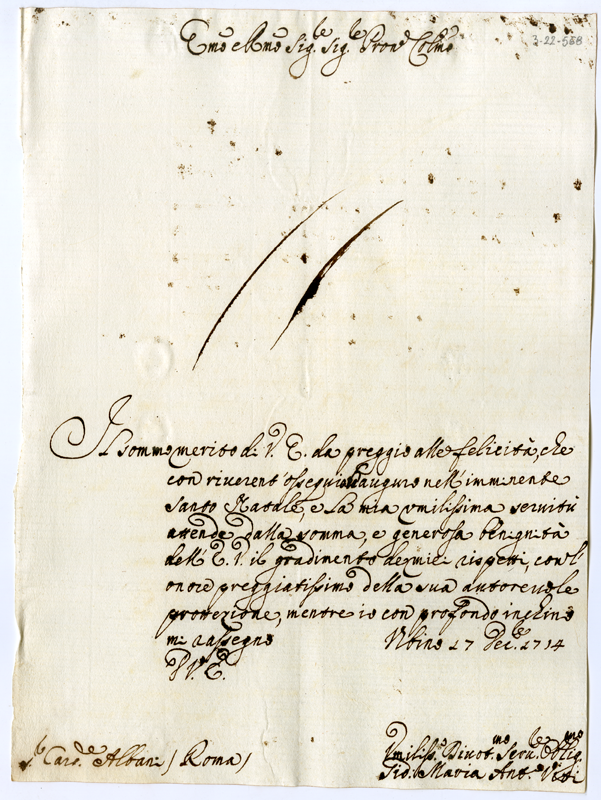 Emo e Rmo Sig.re Sig.re Pron Colmo
3-22-558
Il sommo merito di V. E. da preggio alle felicità, che
con riverent'ossequio l'auguro nell'imminente
santo Natale, e la mia umilissima servitù
attende dalla somma, e generosa benignità
dell'E. V. il gradimento de miei rispetti, con l'
onore preggiatissimo della sua autorevole
protezione, mentre io con profondo inchino
mi rassegno Urbino 17 Dec.e 1714
D V. E.
Card.le Albani / Roma /
Umiliss.o Divot.mo Serv.e Oblig.mo
Sid. Maria Ant. Viti